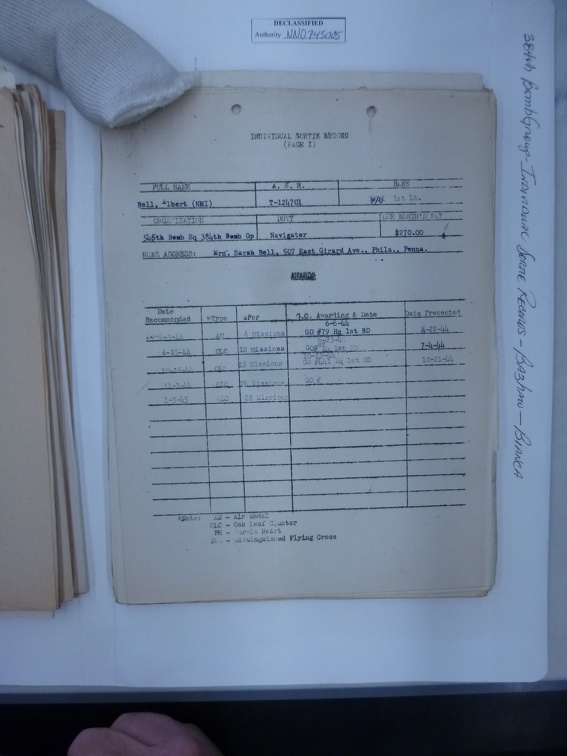 DECLASSIFIED
Authority NND 745005
384th Bomb Group - Individual Sortie Records - Bazhaw - Bianca
INDIVIDUAL SORTIE RECORD
(PAGE I)
FULL NAME A. S. N. RANK
Bell, Albert (NMI) T-124701 F/O 1st Lt.
ORGANIZATION DUTY ONE MONTH'S PAY
546th Bomb Sq 384th Bomb Gp Navigator $270.00
HOME ADDRESS: Mrs. Sarah Bell, 507 East Girard Ave., Phila., Penna.
AWARDS
Date Recommended *Type *For G.O. Awarding & Date Date Presented
6-6-44
AM 6 Missions GO #79 Hq 1st BD
6-15-44 OLC 12 Missions Hq 1st BD 7-4-44
OLC Missions GO Hq 1st BD 10-21-44
OLC Missions
OLC 28 Missions
*Note: AM - Air Medal
OLC - Oak Leaf Cluster
PH - Purple Heart
- Distinguished Flying Cross